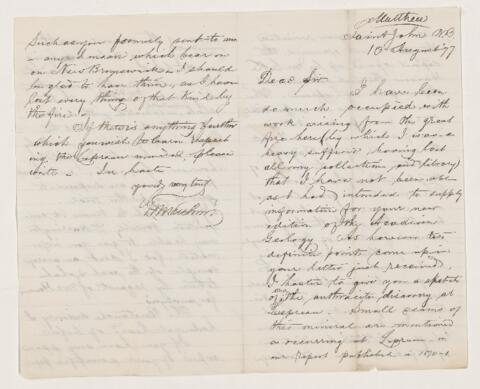 Matthew
Saint John NB
10 August '77
Dear Sir
I have been
so much occupied with
work arising from the great
fire here (by which I was a
heavy sufferer having lost
all my collection and library)
that I have not been able
as I had intended to supply
information for your new
edition of the Acadian
Geology. As however two
definite points come up in
your letter just received,
I hasten to give you a sketch
of the anthracite discovery at
Lepreau. Small seams of
this mineral are mentioned
as occurring at Lepreau in
our report published in 1870-1
Such as you formerly sent to me
any
which bear on
on New Brunswick I should
be glad to have them, as I have
lost every thing of that kind by
the fire.
If there is anything further
which you wish to learn respect
ing the Lepreau mineral please
write. In haste
yours very truly